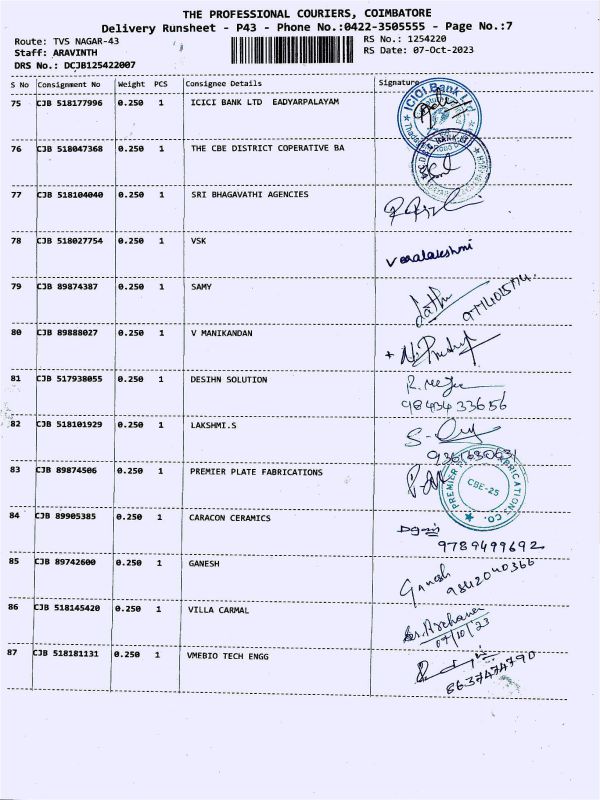 THE PROFESSIONAL COURIERS, COIMBATORE
Delivery Runsheet - P43 - Phone No.:0422-3505555 - Page No.:7
Route: TVS NAGAR-43 RS No.: 1254220
Staff: ARAVINTH RS Date: 07-Oct-2023
DRS No.: DCJB125422007
S No Consignment No Weight PCS Consignee Details Signature
75 CJB 518177996 0.250 1 ICICI BANK LTD EADYARPALAYAM ICICI Bank Ltd
76 CJB 518047368 0.250 1 THE CBE DISTRICT COPERATIVE BA
77 CJB 518104040 0.250 1 SRI BHAGAVATHI AGENCIES
78 CJB 518027754 0.250 1 VSK Varalakshmi
79 CJB 89874387 0.250 1 SAMY
80 CJB 89888027 0.250 1 V MANIKANDAN
81 CJB 517938055 0.250 1 DESIHN SOLUTION
9843433656
82 CJB 518101929 0.250 1 LAKSHMI.S
83 CJB 89874506 0.250 1 PREMIER PLATE FABRICATIONS CBE-25
84 CJB 89905385 0.250 1 CARACON CERAMICS
9789499692
85 CJB 89742600 0.250 1 GANESH Ganesh
9842040366
86 CJB 518145420 0.250 1 VILLA CARMAL Sr.Archana
07/10/23
87 CJB 518181131 0.250 1 VMEBIO TECH ENGG
8637474790